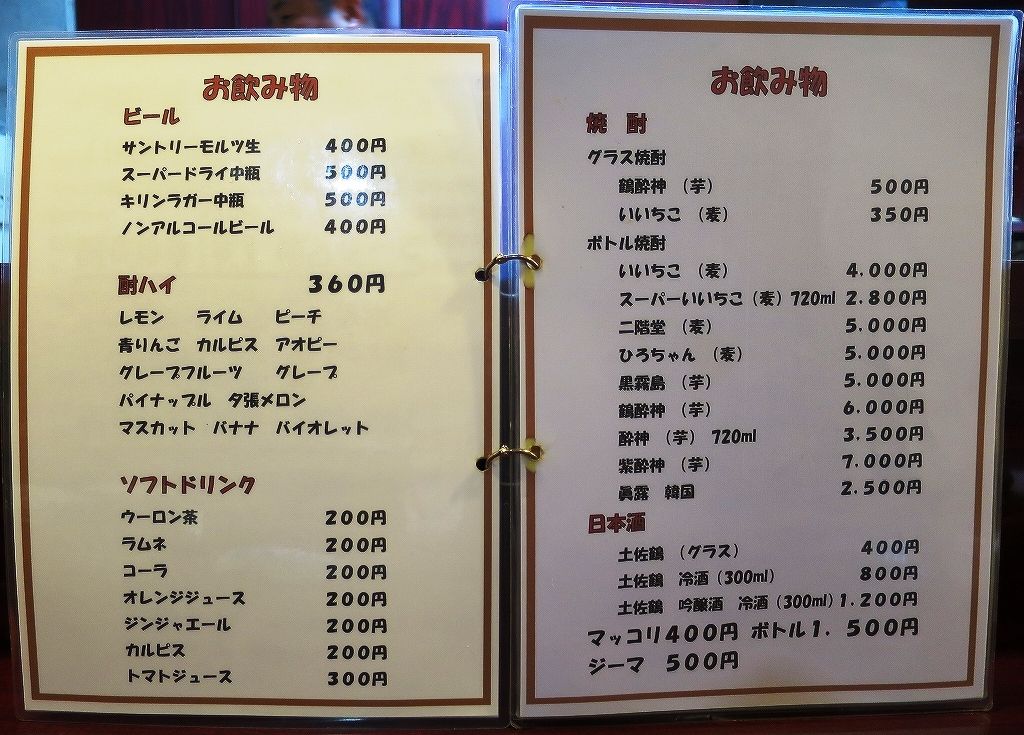 お飲み物
ビール
サントリーモルツ生 400円
スーパードライ中瓶 500円
キリンラガー中瓶 500円
ノンアルコールビール 400円
酎ハイ 360円
レモン ライム ピーチ
青りんご カルピス アオピー
グレープフルーツ グレープ
パイナップル 夕張メロン
マスカット バナナ バイオレット
ソフトドリンク
ウーロン茶 200円
ラムネ 200円
コーラ 200円
オレンジジュース 200円
ジンジャエール 200円
カルピス 200円
トマトジュース 300円
お飲み物
焼 酎
グラス焼酎
鶴酔神 （芋） 500円
いいちこ （麦） 350円
ボトル焼酎
いいちこ （麦） 4.000円
スーパーいいちこ（麦）720ml 2.800円
二階堂 （麦） 5.000円
ひろちゃん （麦） 5.000円
黒霧島 （芋） 5.000円
鶴酔神 （芋） 6.000円
酔神 （芋） 720ml 3.500円
紫酔神 （芋） 7.000円
眞露 韓国 2.500円
日本酒
土佐鶴 （グラス） 400円
土佐鶴 冷酒（300ml） 800円
土佐鶴 吟醸酒 冷酒（300ml）1.200円
マッコリ400円 ボトル1. 500円
ジーマ 500円